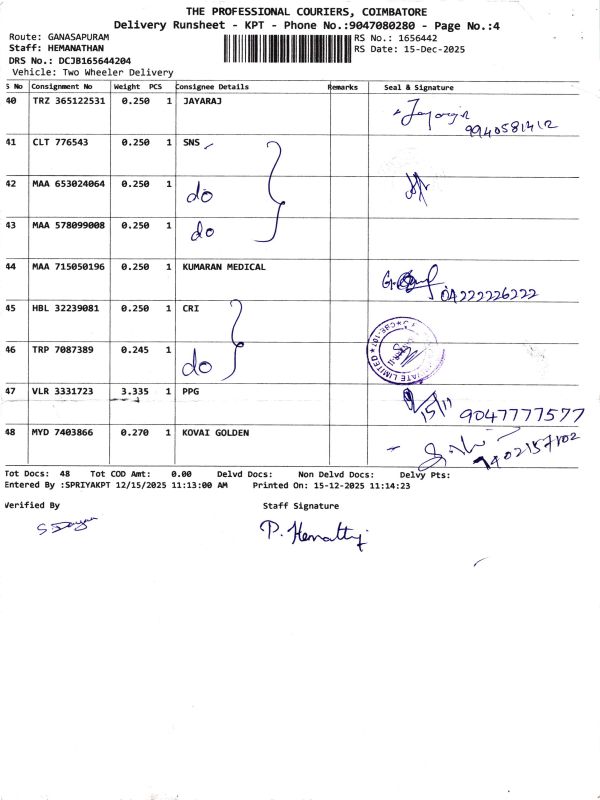 THE PROFESSIONAL COURIERS, COIMBATORE
Delivery Runsheet - KPT - Phone No.:9047080280 - Page No.:4
Route: GANASAPURAM RS No.: 1656442
Staff: HEMANATHAN RS Date: 15-Dec-2025
DRS No.: DCJB165644204
Vehicle: Two Wheeler Delivery
S No Consignment No Weight PCS Consignee Details Remarks Seal & Signature
40 TRZ 365122531 0.250 1 JAYARAJ Jayaraj 9940581412
41 CLT 776543 0.250 1 SNS
42 MAA 653024064 0.250 1 do
43 MAA 578099008 0.250 1 do
44 MAA 715050196 0.250 1 KUMARAN MEDICAL 04222226222
45 HBL 32239081 0.250 1 CRI
46 TRP 7087389 0.245 1 do
47 VLR 3331723 3.335 1 PPG 15/11 9047777577
48 MYD 7403866 0.270 1 KOVAI GOLDEN 7402157102
Tot Docs: 48 Tot COD Amt: 0.00 Delvd Docs: Non Delvd Docs: Delvy Pts:
Entered By :SPRIYAKPT 12/15/2025 11:13:00 AM Printed On: 15-12-2025 11:14:23
Verified By Staff Signature